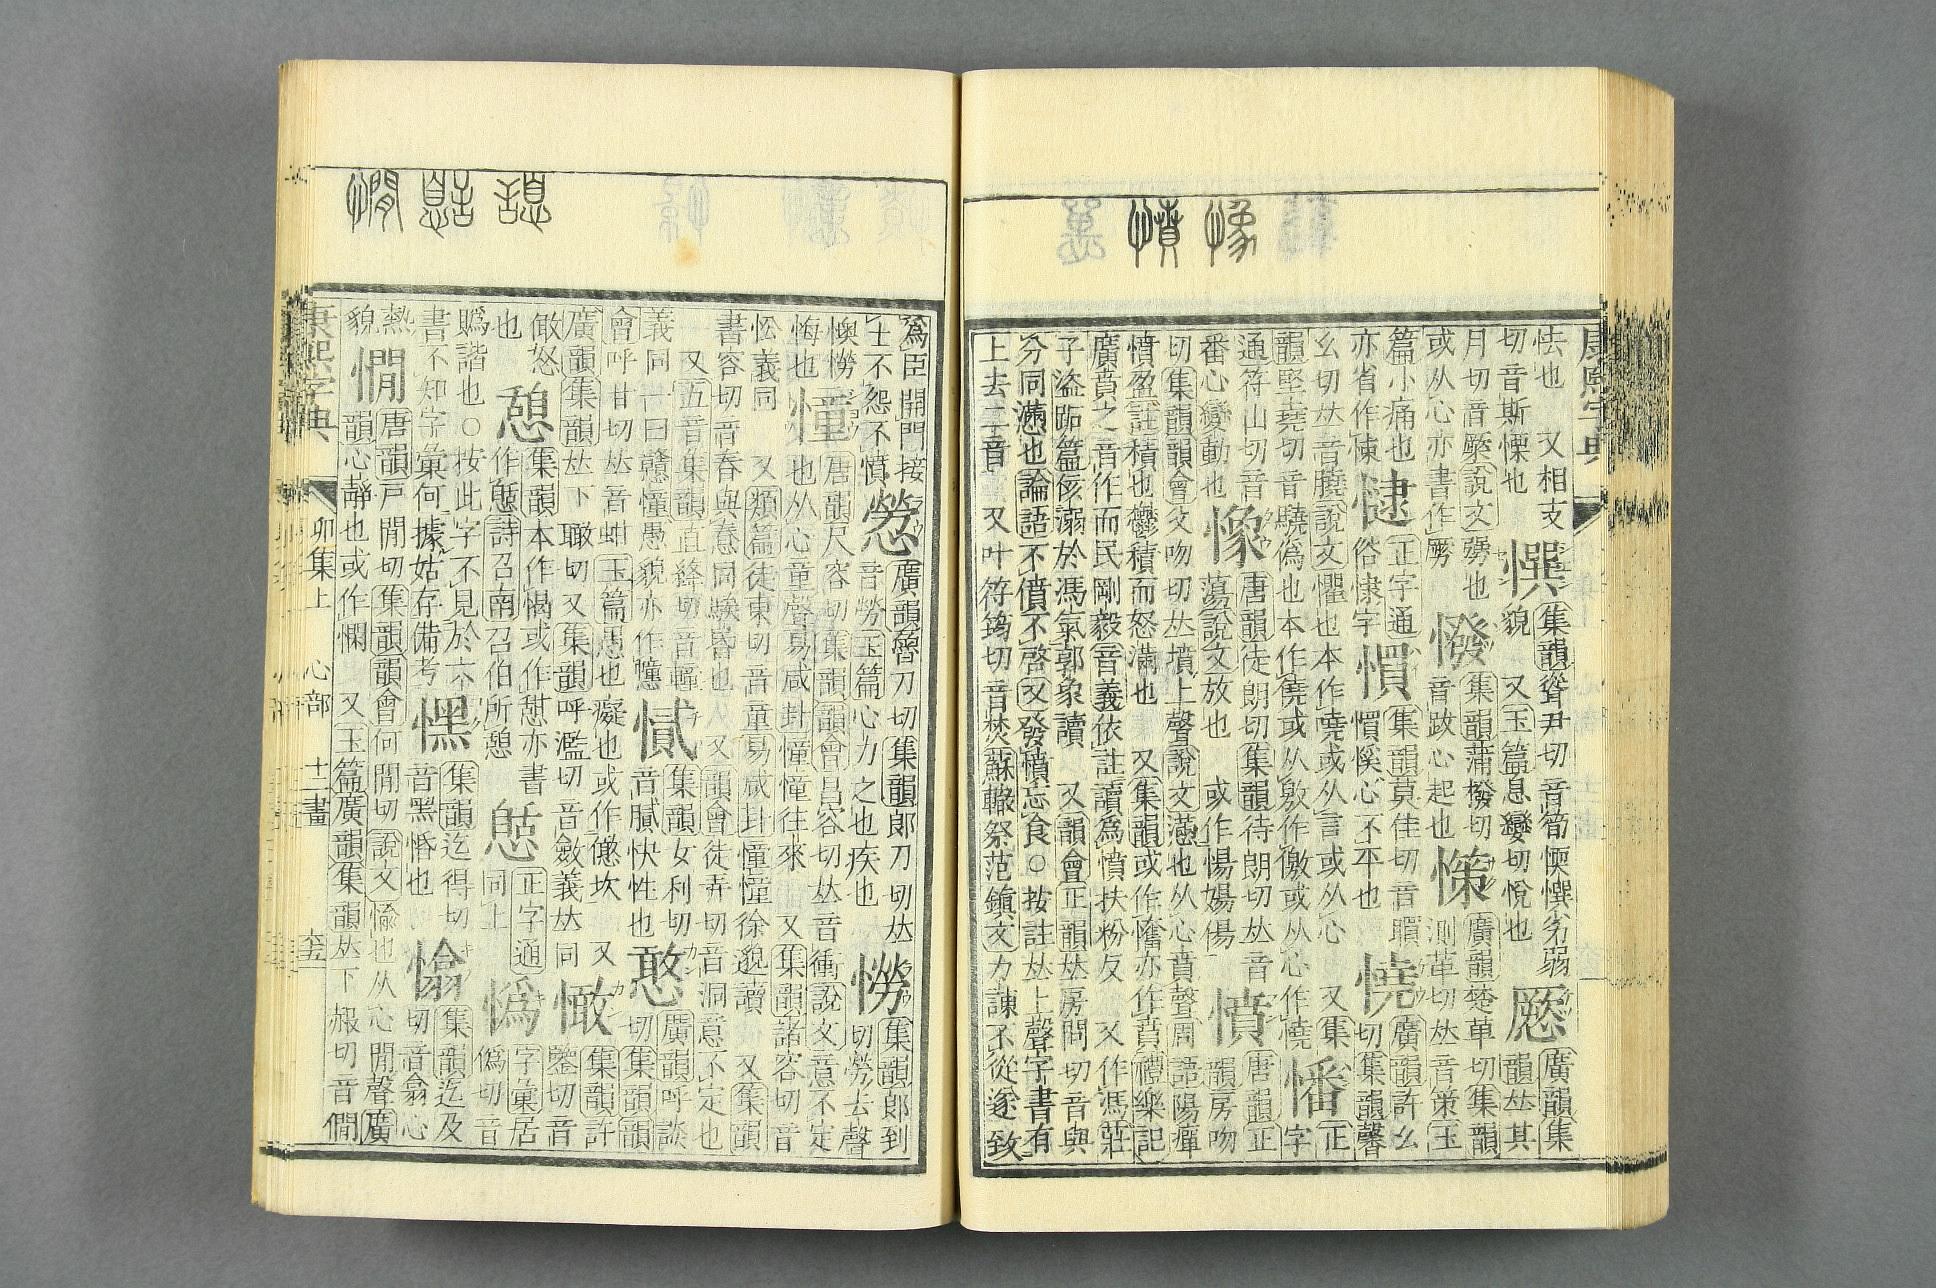 憰
憤
康熙字典
怯也 又相支
切音斯慄也
集韻聳尹切音筍愞㦏劣弱
貌 又玉篇息變切悅也
廣韻集
韻𠀤其
月切音厥說文彊也
或从心亦書作
集韻蒲撥切
音跋心起也
憡
廣韻楚革切集韻
測革切𠀤音策玉
篇小痛也
亦省作悚
正字通
俗字
集韻莫佳切音
心不平也
憢
廣韻許幺
切集韻馨
幺切𠀤音膮說文懼也本作嘵或从言或从心 又集
韻堅堯切音驍偽也本作僥或从敫作儌或从心作憢
憣
正
字
通符山切音
番心變動也
唐韻徒朗切集韻待朗切𠀤音
蕩說文放也 或作
憤
唐韻正
韻房吻
切集韻韻會父吻切𠀤墳上聲說文懣也从心賁聲周語陽癉
憤盈註積也鬱積而怒滿也 又集韻或作奮亦作賁禮樂記
廣賁之音作而民剛毅音義依註讀爲憤扶粉反 又作馮莊
子盜跖篇侅溺於馮氣郭象讀 又韻會正韻𠀤房問切音與
分同懣也論語不憤不啓又發憤忘食○按註𠀤上聲字書有
上去二音 又叶符筠切音焚蘇轍祭范鎮文力諫不從遂致
憩
憪
爲臣開門接
士不怨不憤
憥
廣韻魯刀切集韻郎刀切𠀤
音勞玉篇心力之也疾也
憦
集韻郎到
切勞去聲
懊憦
悔也
憧
唐韻尺容切集韻韻會昌容切𠀤音衝說文意不定
也从心童聲易咸卦憧憧往來 又集韻諸容切音
忪義同 又類篇徒東切音童易咸卦憧憧徐邈讀 又集韻
書容切音舂與惷同騃昏也 又韻會徒弄切音洞意不定也
又五音集韻直絳切音幢
義同 一曰戇憧愚貌亦作
集韻女利切
音膩快性也
憨
廣韻呼談
切集韻韻
會呼甘切𠀤音蚶玉篇愚也癡也或作 又
廣韻集韻𠀤下瞰切又集韻呼濫切音㪘義𠀤同
憿
集韻許
鑒切音
怒
也
憩
集韻本作愒或作亦書
作憇詩召南召伯所憩
憇
正字通
同上
字彙居
僞切音
䞈諧也○按此字不見於六
書不知字彙何據姑存備考
集韻迄得切
音黑惛也
集韻迄及
切音翕心
熱
貌
憪
唐韻戸閒切集韻韻會何閒切說文愉也从心閒聲廣
韻心靜也或作㦖 又玉篇廣韻集韻𠀤下赧切音僩
康熙字典
卯集上 心部 十二畫